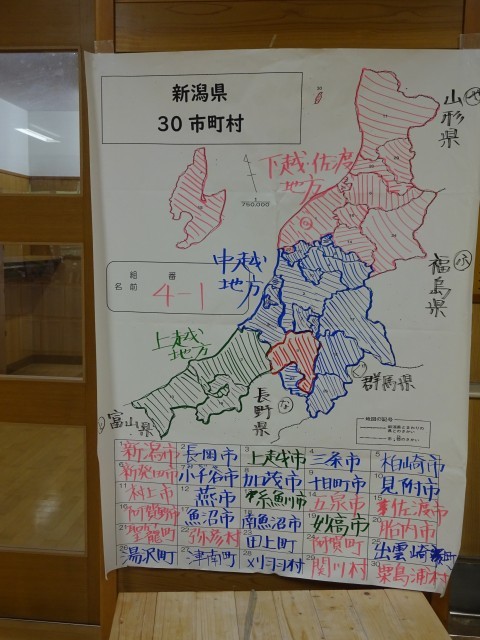 新潟県
30市町村
30
下越・佐渡
地方
4
1
750,000
山形県
や
中越
地方
組 番
名前
4-1
福島県
ふ
上越
地方
群馬県
ぐ
長野県
な
富山県
と
地図の記号
1 新潟市 2 長岡市 3 上越市 4 三条市 5 柏崎市
6 新発田市 7 小千谷市 8 加茂市 9 十日町市 10 見附市
11 村上市 12 燕市 糸魚川市 14 五泉市 15 佐渡市
16 阿賀野市 17 魚沼市 18 南魚沼市 19 妙高市 20 胎内市
21 聖籠町 22 弥彦村 23 田上町 24 阿賀町 25 出雲崎町
26 湯沢町 27 津南町 28 刈羽村 29 関川村 30 粟島浦村